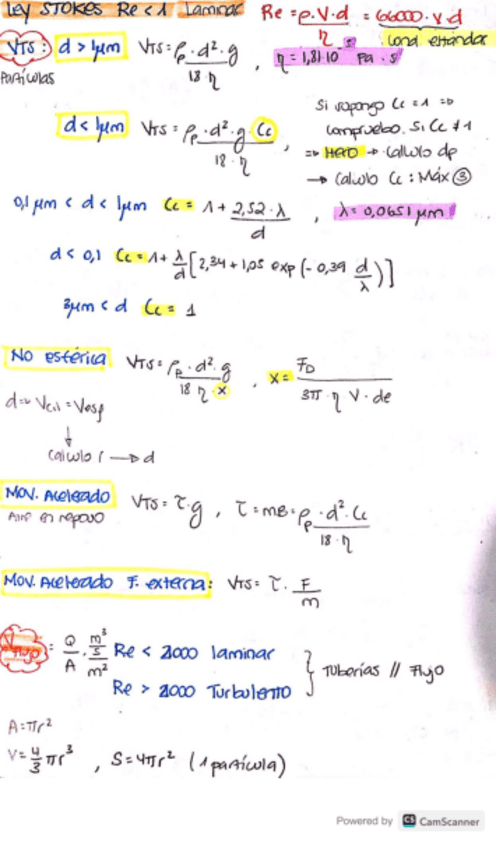 Ley STOKES Re < 1 Laminar Re = ρ.V.d / η = 66000.v.d
Cond. estándar
VTS: d > 1μm VTS = ρp.d².g / 18.η , η = 1,81·10⁻⁵ Pa.s
Partículas
Si supongo Cc = 1 =>
d < 1μm VTS = ρp.d².g Cc / 18.η , compruebo. Si Cc ≠ 1
=> → calculo dp
→ calculo Cc : Máx ③
0,1 μm < d < 1μm Cc = 1 + 2,52.λ / d , λ = 0,0651 μm
d < 0,1 Cc = 1 + λ/d [2,34 + 1,05 exp (-0,39 d/λ)]
3μm < d Cc = 1
No esférica VTS = ρp.d².g / 18 η x , x = FD / 3π.η V.de
d => Vcil = Vesf
↓
calculo r → d
MOV. Acelerado VTS = τ.g , τ = mB = ρp.d².Cc / 18.η
Aire en reposo
MOV. Acelerado F. externa: VTS = τ. F/m
V flujo : Q/A . m³/s / m² Re < 2000 laminar
Re > 2000 Turbulento } Tuberías // Flujo
A = πr²
V = 4/3 πr³ , S = 4πr² (1 partícula)
Powered by CS CamScanner